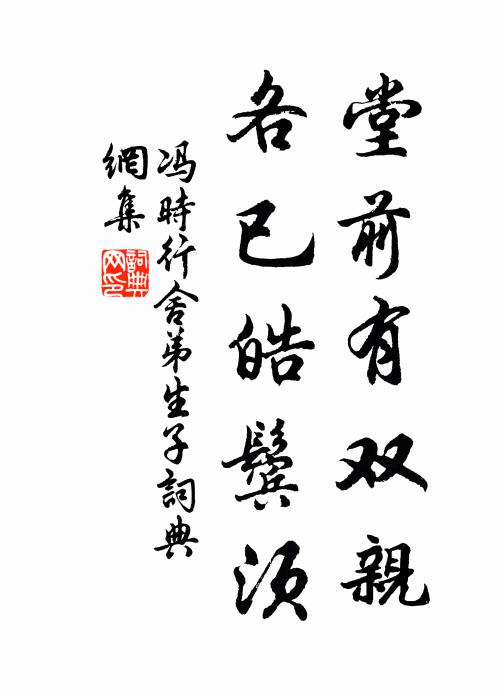 堂前有双親
各已皓鬢须
冯時行舍弟生子詞典
網集
詞典网印